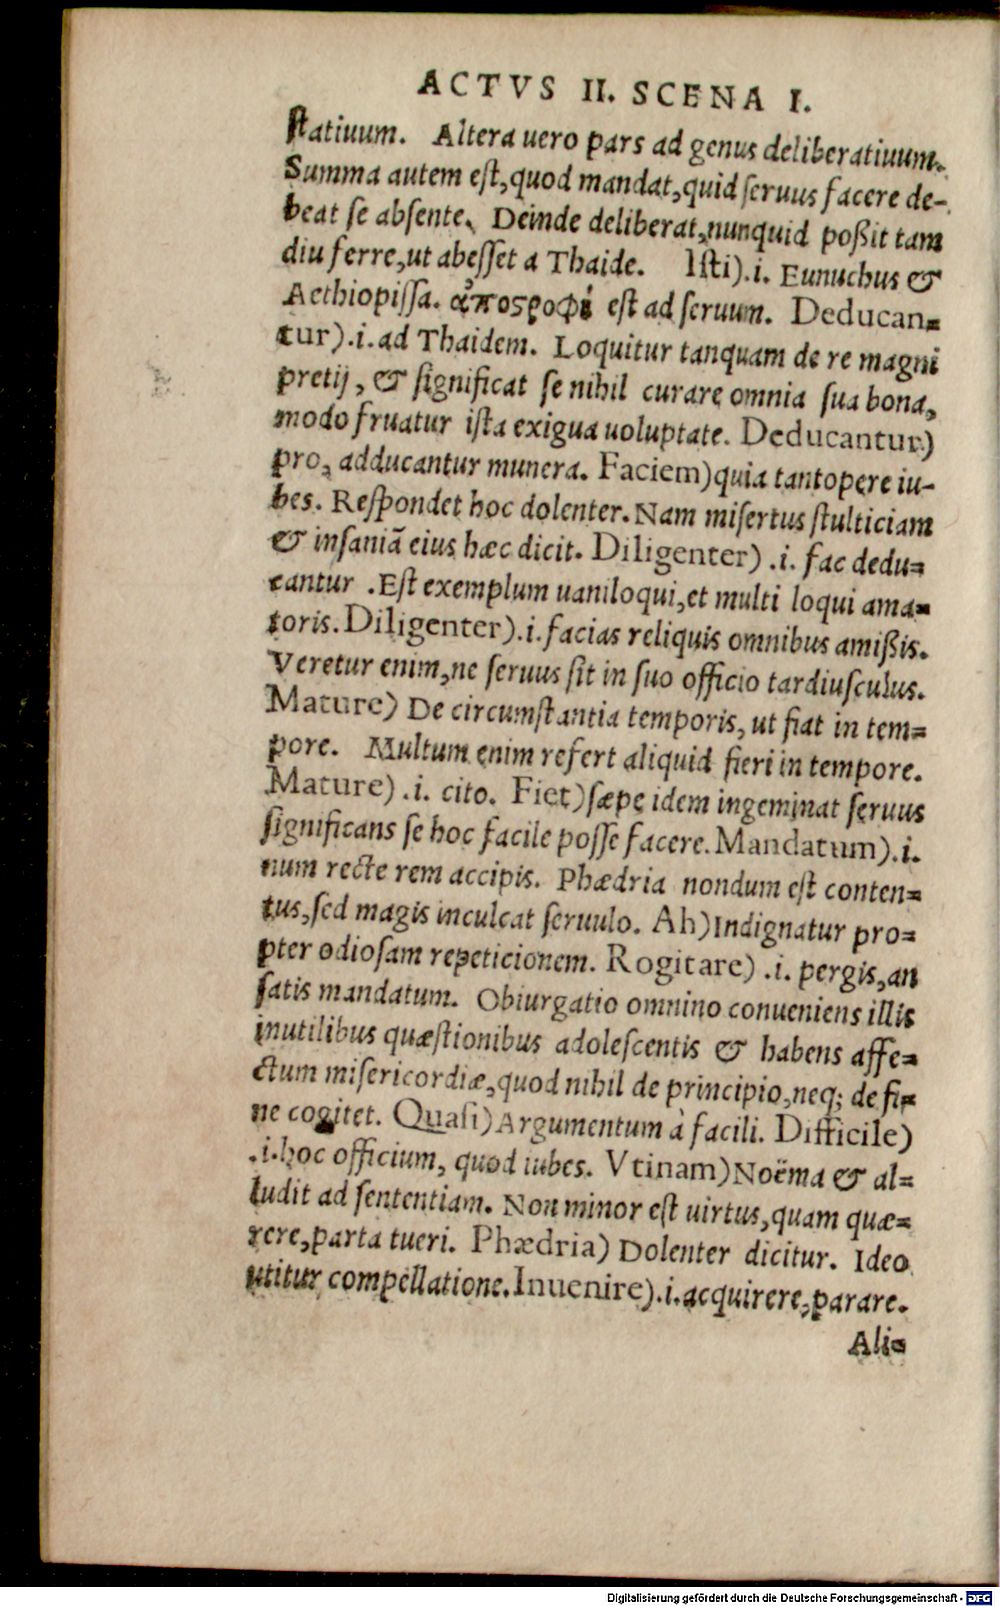 ACTVS II. SCENA I.
ſtatiuum. Altera uero pars ad genus deliberatiuum.
Summa autem eſt, quod mandat, quid ſeruus facere de-
beat ſe abſente. Deinde deliberat, nunquid poßit tam
diu ferre, ut abeſſet a Thaide. Iſti).i. Eunuchus &
Aethiopiſſa. ἀποςροφὶ eſt ad ſeruum. Deducan=
tur).i. ad Thaidem. Loquitur tanquam de re magni
pretij, & ſignificat ſe nihil curare omnia ſua bona,
modo fruatur iſta exigua uoluptate. Deducantur)
pro, adducantur munera. Faciem) quia tantopere iu-
bes. Reſpondet hoc dolenter. Nam miſertus ſtulticiam
& inſaniã eius hæc dicit. Diligenter) .i. fac dedu=
cantur . Eſt exemplum uaniloqui, et multi loqui ama=
toris. Diligenter).i. facias reliquis omnibus amißis.
Veretur enim, ne ſeruus ſit in ſuo officio tardiuſculus.
Mature) De circumſtantia temporis, ut fiat in tem=
pore. Multum enim refert aliquid fieri in tempore.
Mature) .i. cito. Fiet) ſæpe idem ingeminat ſeruus
ſignificans ſe hoc facile poſſe facere. Mandatum).i.
num recte rem accipis. Phædria nondum eſt conten=
tus, ſed magis inculcat ſeruulo. Ah) Indignatur pro=
pter odioſam repeticionem. Rogitare) .i. pergis, an
ſatis mandatum. Obiurgatio omnino conueniens illis
inutilibus quæſtionibus adoleſcentis & habens affe=
ctum miſericordiæ, quod nihil de principio, neq; de fi=
ne cogitet. Quaſi) Argumentum à facili. Difficile)
.i. hoc officium, quod iubes. Vtinam) Noëma & al=
ludit ad ſententiam. Non minor eſt uirtus, quam quæ=
rere, parta tueri. Phædria) Dolenter dicitur. Ideo
utitur compellatione. Inuenire).i. acquirere, parare.
Ali=
Digitalisierung gefördert durch die Deutsche Forschungsgemeinschaft - DFG